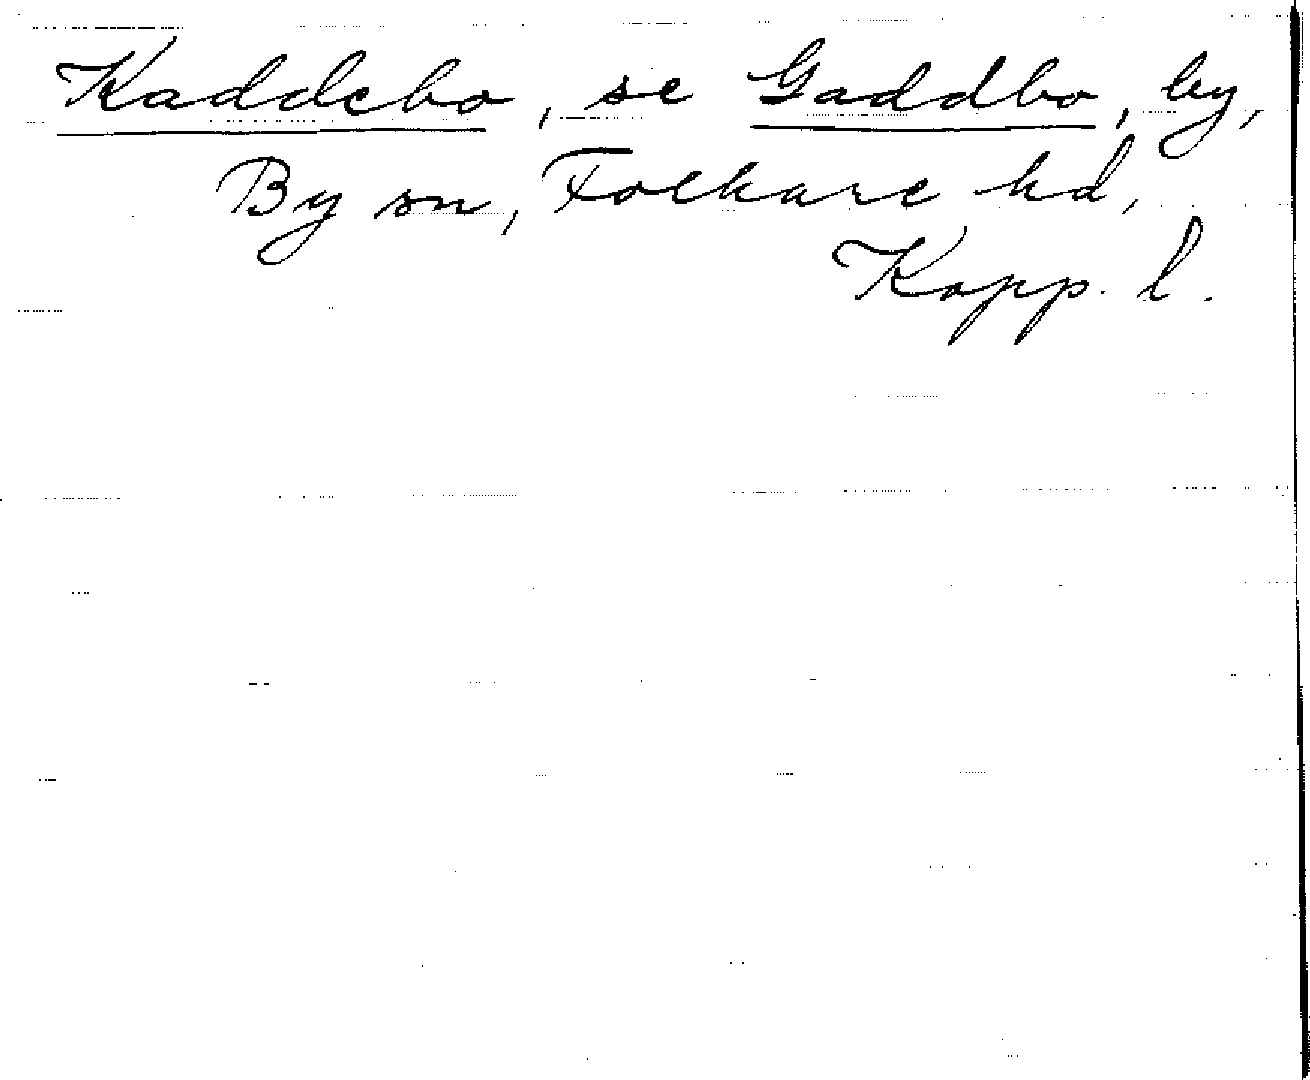 Kaddebo, se Gaddbo, by,
By sn, Folkare hd,
Kopp. l.